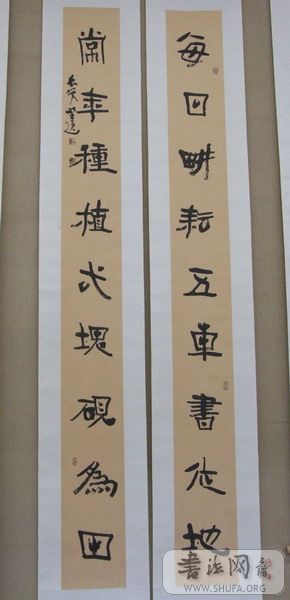 每日畊耘五車書作地
常年種植弌塊硯為田
書法网
WWW.SHUFA.ORG